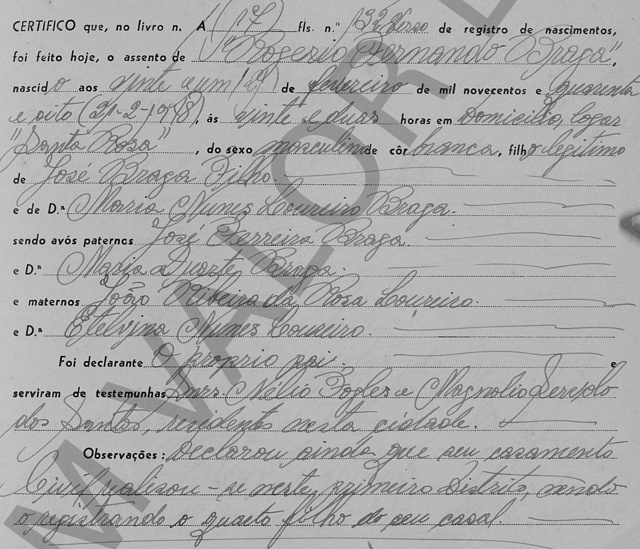 CERTIFICO que, no livro n. A (17) fls. n.º 132 verso de registro de nascimentos,
foi feito hoje, o assento de "Rogerio Fernando Braga",
nascido aos vinte e um (21) de fevereiro de mil novecentos e quarenta
e oito (21-2-1948), ás vinte e duas horas em domicilio, logar
"Santa Rosa", do sexo masculino de côr branca, filho legitimo
de José Braga Filho.
e de D.ª Maria Nunes Loureiro Braga.
sendo avós paternos José Ferreira Braga.
e D.ª Maria Duarte Braga.
e maternos João Ribeiro da Rosa Loureiro.
e D.ª Etelvina Nunes Loureiro.
Foi declarante O proprio pai. e
serviram de testemunhas Snrs. Nélio e Magnolio
dos Santos, residentes nesta cidade.
Observações: Declarou ainda que seu casamento
Civil realisou-se neste primeiro Distrito, sendo
o registrando o quarto filho do seu casal.
M VALOR L